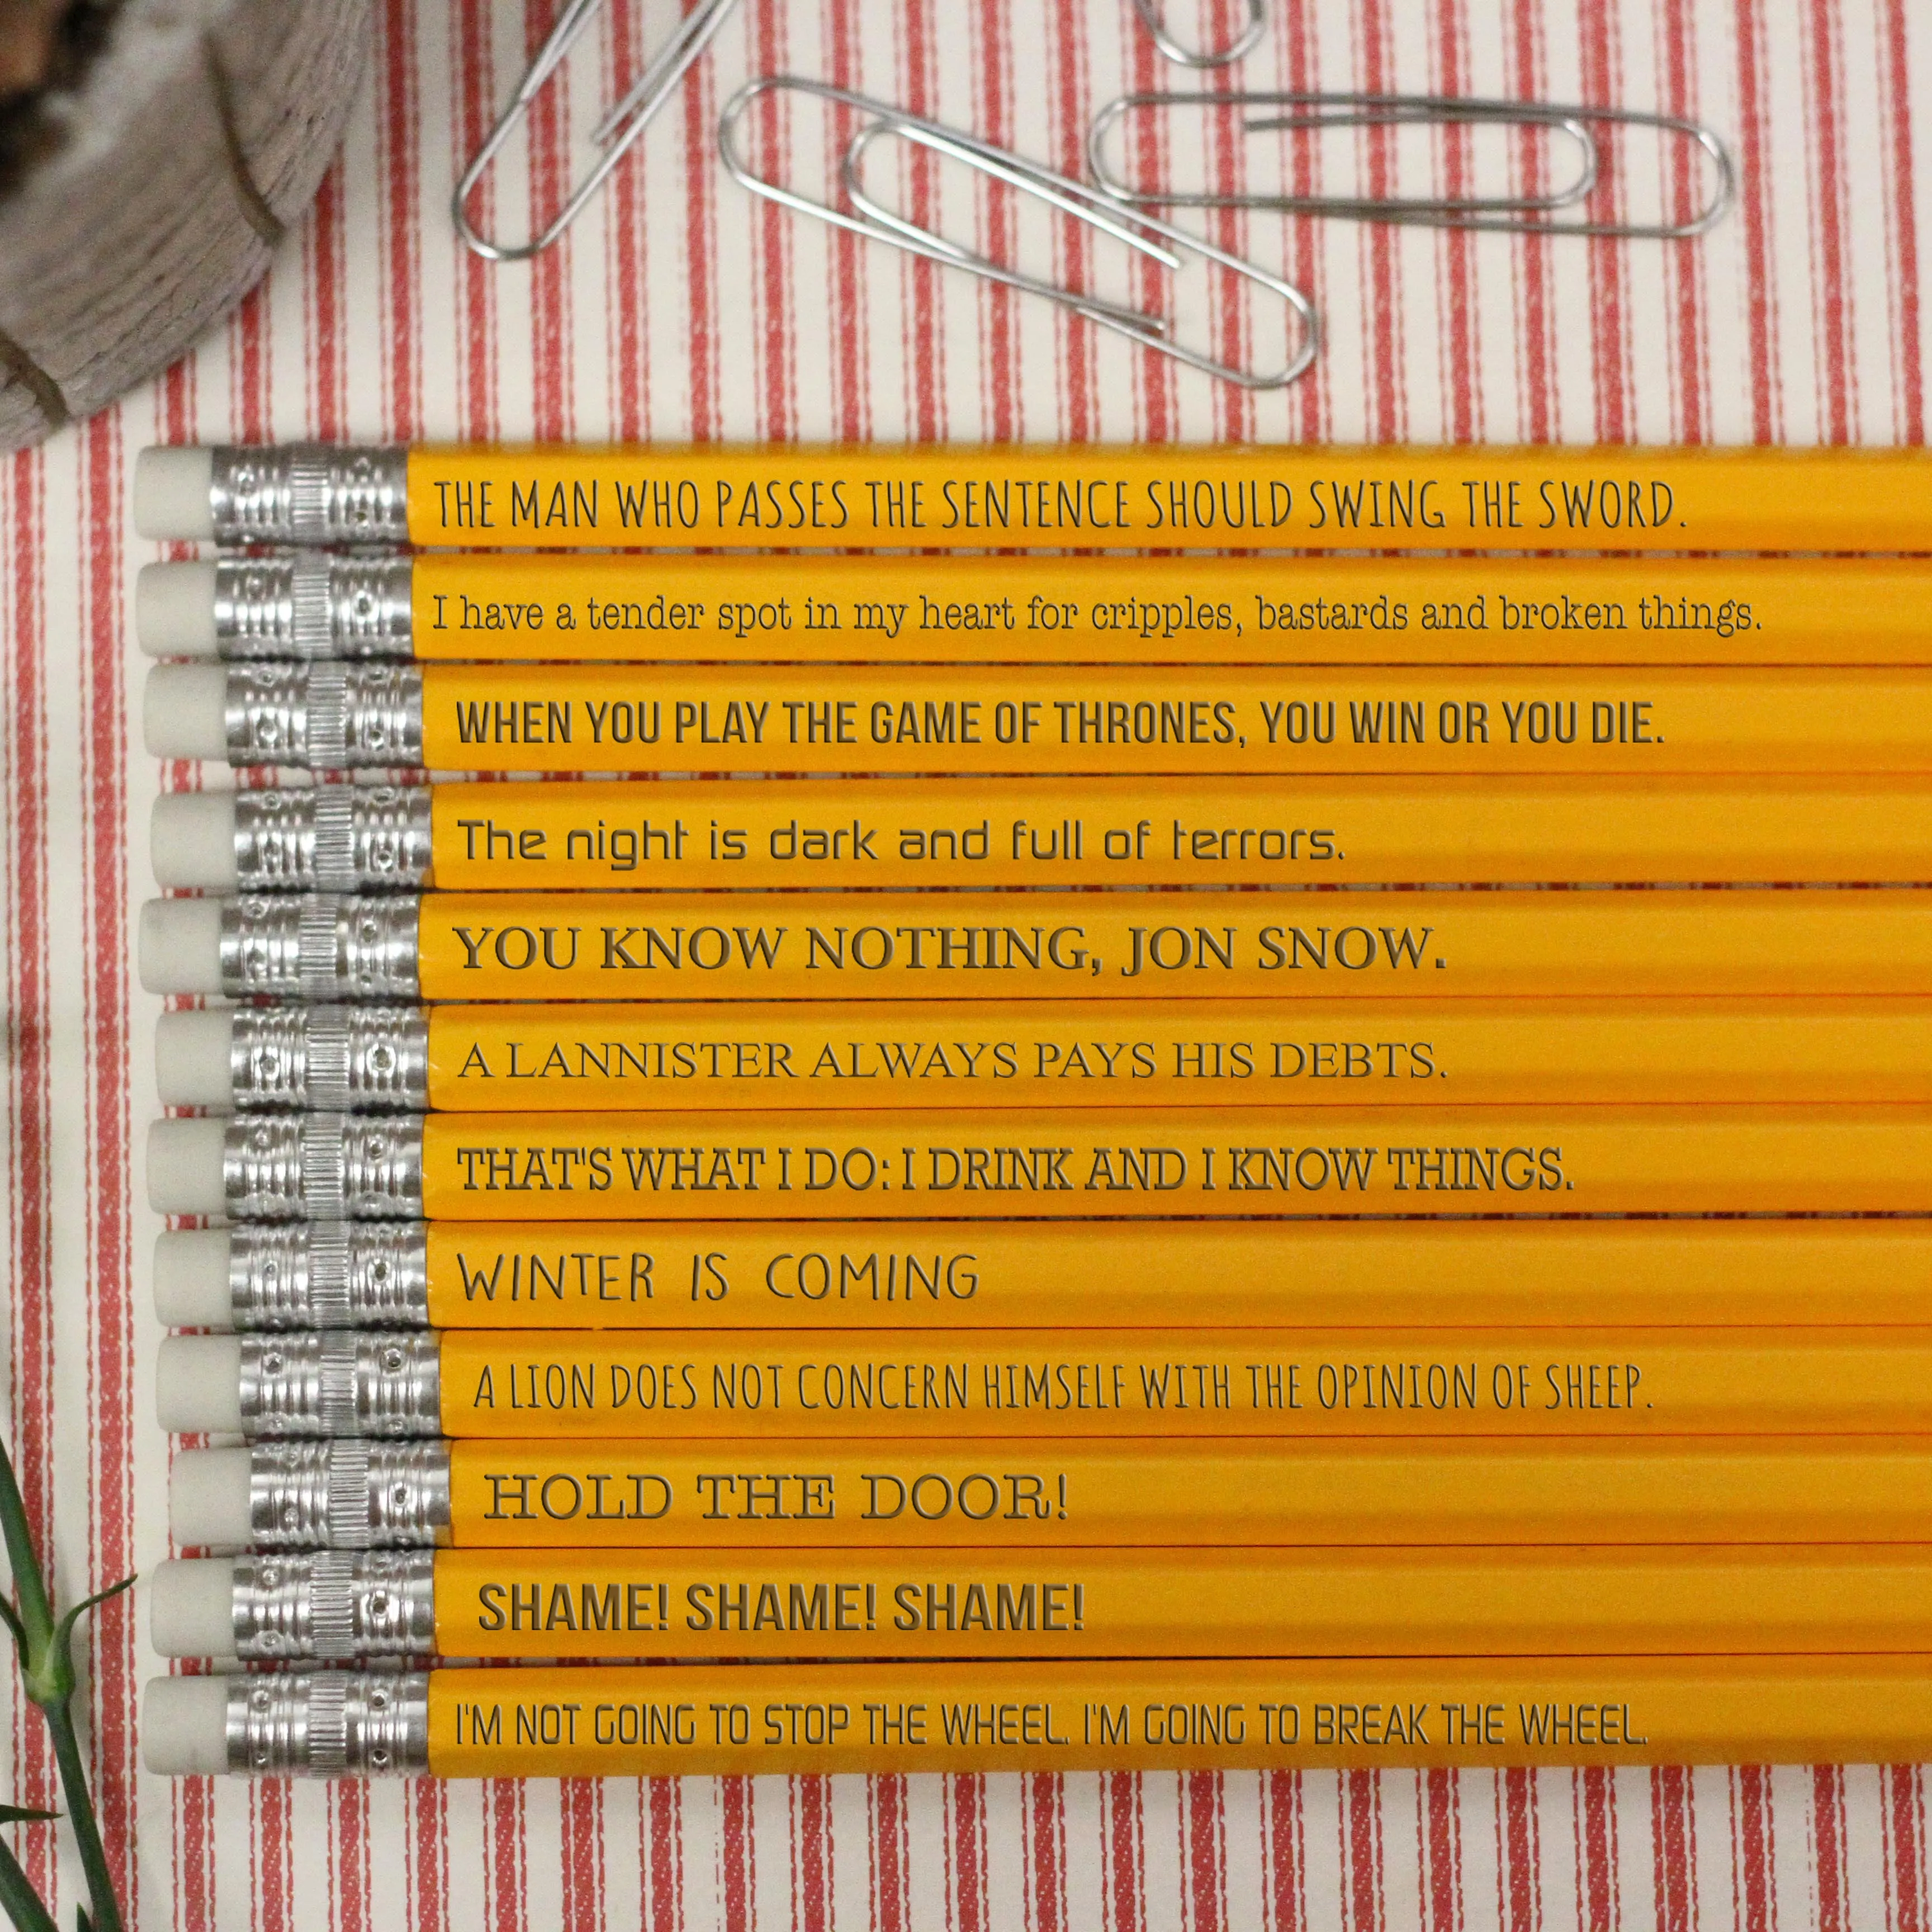 THE MAN WHO PASSES THE SENTENCE SHOULD SWING THE SWORD.
I have a tender spot in my heart for cripples, bastards and broken things.
WHEN YOU PLAY THE GAME OF THRONES, YOU WIN OR YOU DIE.
The night is dark and full of terrors.
YOU KNOW NOTHING, JON SNOW.
A LANNISTER ALWAYS PAYS HIS DEBTS.
THAT'S WHAT I DO: I DRINK AND I KNOW THINGS.
WINTER IS COMING
A LION DOES NOT CONCERN HIMSELF WITH THE OPINION OF SHEEP.
HOLD THE DOOR!
SHAME! SHAME! SHAME!
I'M NOT GOING TO STOP THE WHEEL. I'M GOING TO BREAK THE WHEEL.